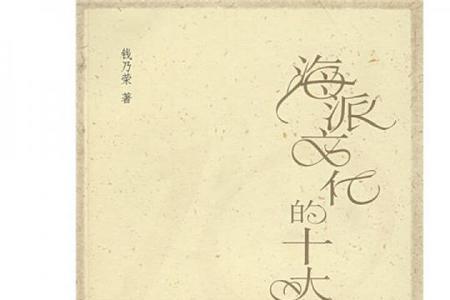 海派文化的十大
钱乃荣 著